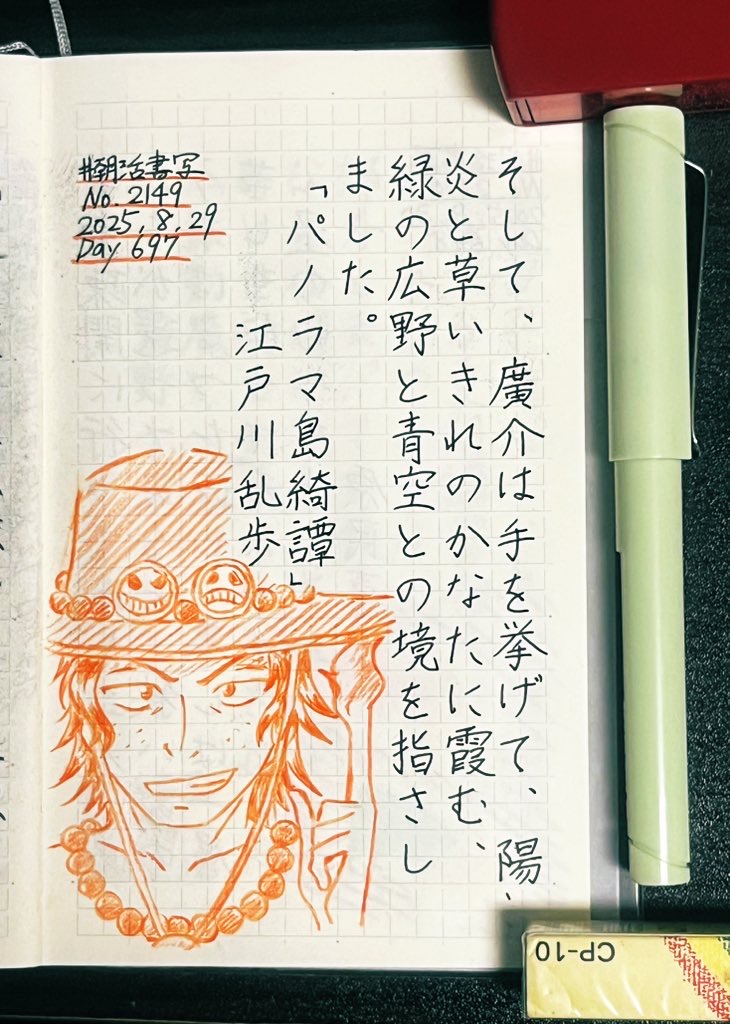 そして、廣介は手を挙げて、陽
炎と草いきれのかなたに霞む、
緑の広野と青空との境を指さし
ました。
「パノラマ島綺譚」
江戸川乱歩
#朝活書写
No. 2149
2025, 8, 29
Day 697
CP-10